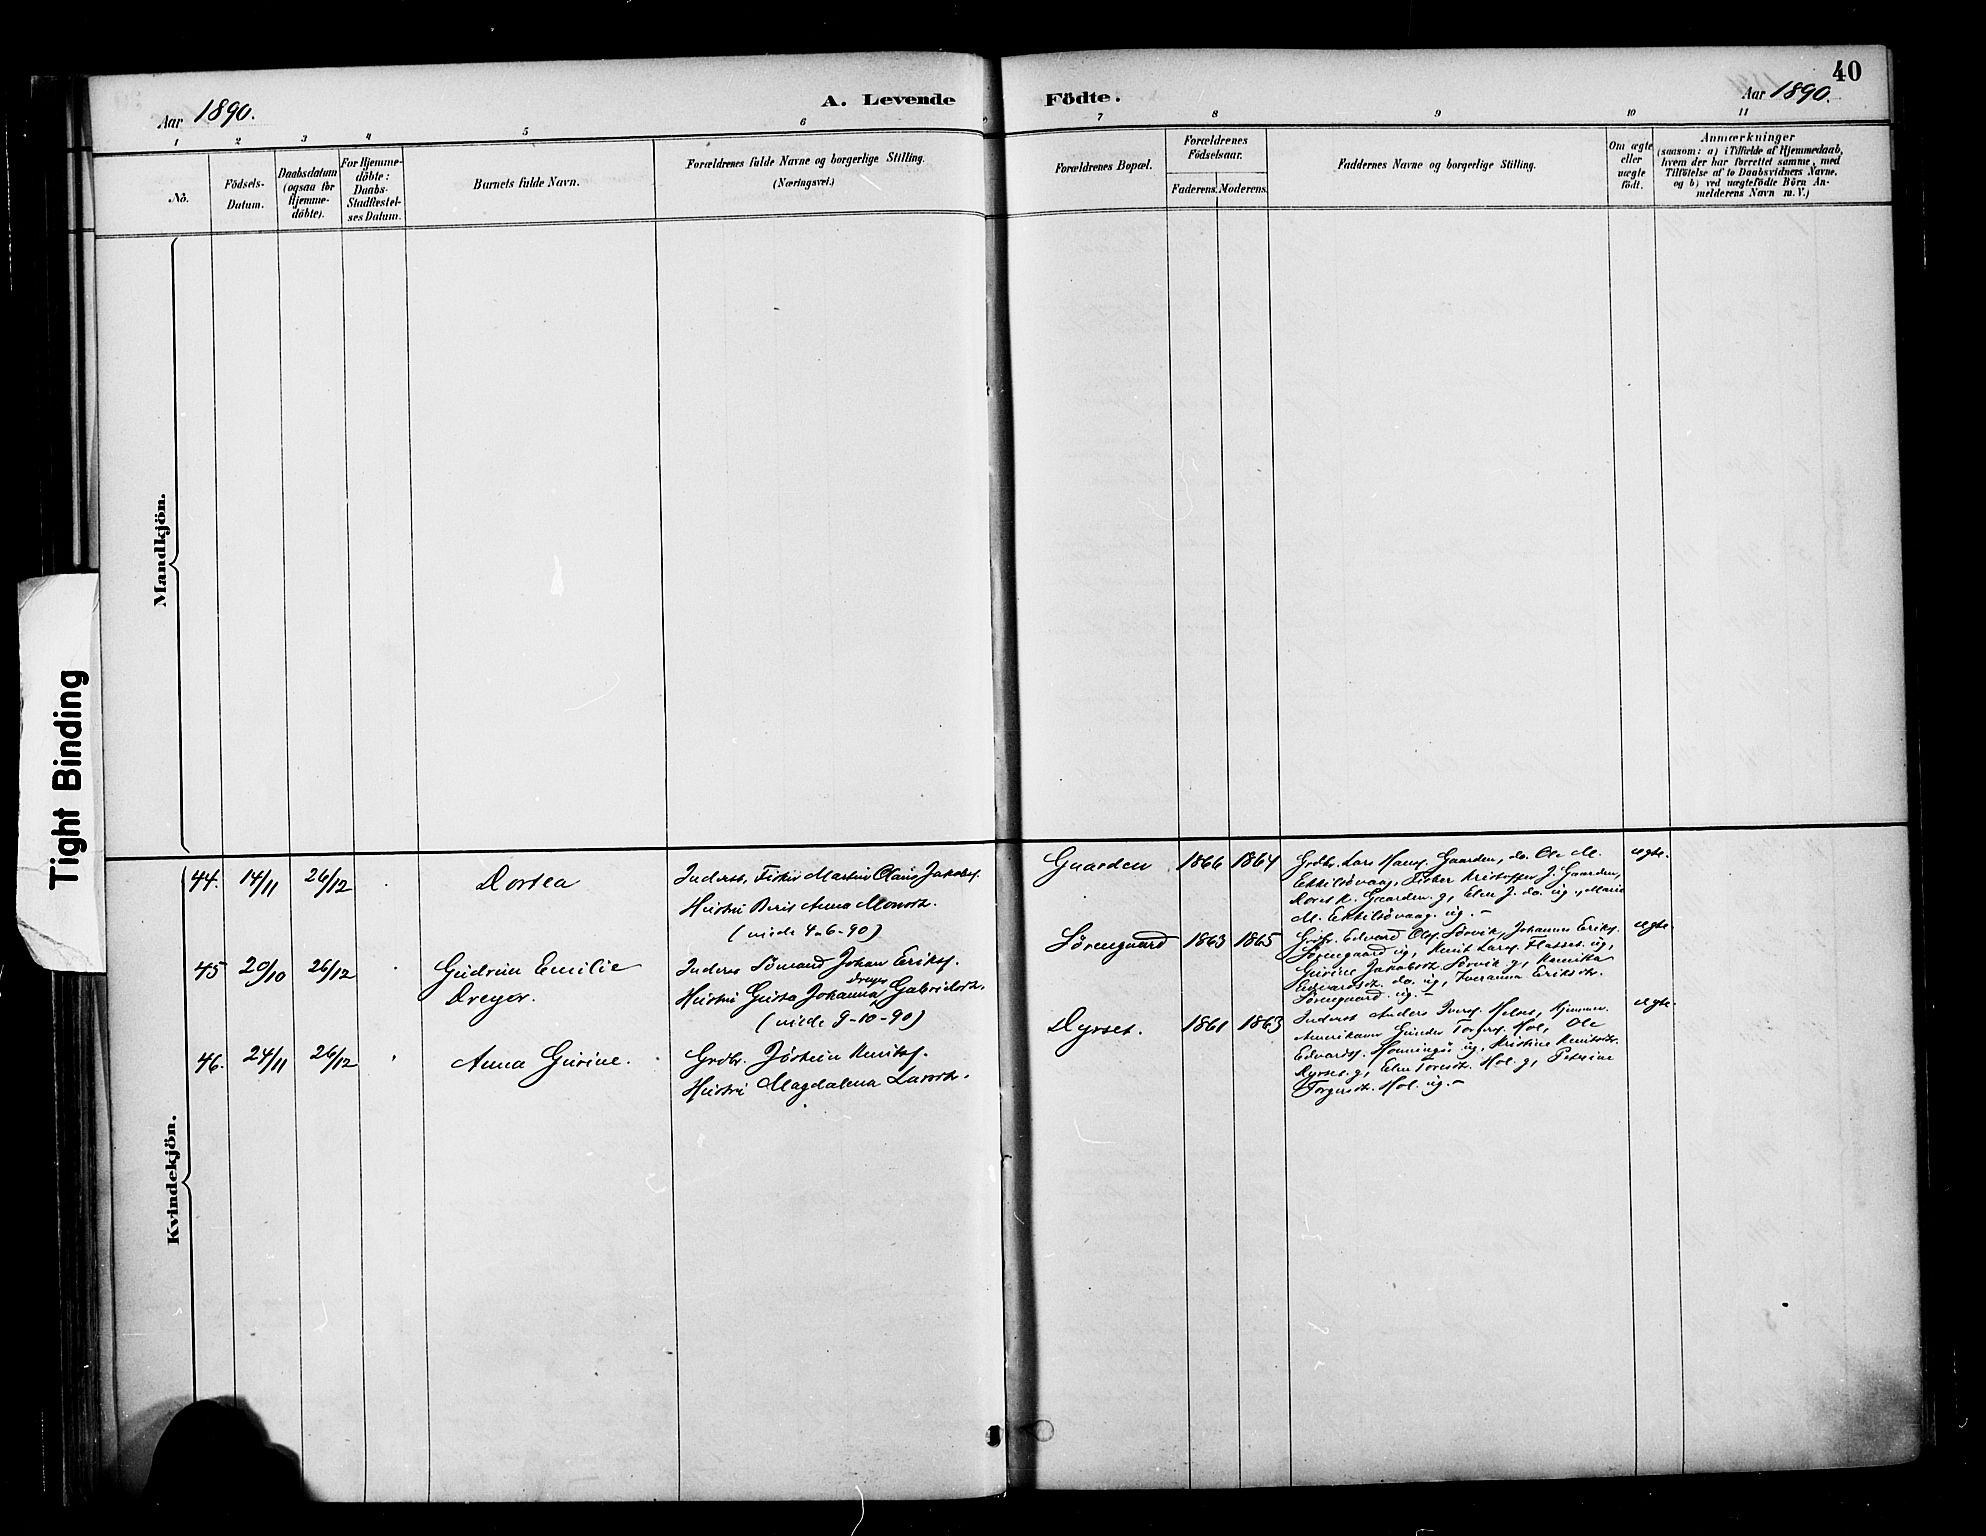 40
Aar 1890.
A. Levende Födte.
Aar 1890.
1 2 3 4 5 6 7 8 9 10 11
No.
Födsels-
Datum.
Daabsdatum
(ogsaa for
Hjemme-
döbte).
For Hjemme-
döbte:
Daabs-
Stadfæstel-
ses Datum.
Barnets fulde Navn.
Forældrenes fulde Navne og borgerlige Stilling.
(Næringsvei.)
Forældrenes Bopæl.
Forældrenes
Födselsaar.
Faderens. Moderens.
Faddernes Navne og borgerlige Stilling.
Om ægte
eller
uægte
födt.
Anmærkninger
(saasom: a) i Tilfælde af Hjemmedaab,
hvem der har forrettet samme, med
Tilföielse af to Daabsvidners Navne,
og b) ved uægtefödte Börn An-
melderens Navn m. V.)
Mandkjön.
Tight Binding
Kvindekjön.
44. 14/11 26/12 Dortea
Inderst, Fisker Martin Olaus Jakobs.
Hustru Berit Anna Monsdt.
(viede 4-6-90)
Gaarden 1866 1864
Grdbr. Lars Hans. Gaarden, do. Ole M.
Ekkilsövaag, Fisker Kristoffer J. Gaarden,
K. Gaarden g, Elen J. do. ug., Marie
M. Ekkilsövaag. ug.-
ægte.
45 20/10 26/12 Gudrun Emilie
Dreyer.
Inderst Sömand Johan Eriks.
Hustru Gusta Johanna Dreyer Gabrielsdt.
(viede 9-10-90)
Sörengaard 1863 1865
Grdbr. Edvard Ols. Sörvik, Johannes Eriks.
Sörengaard ug, Knut Lars. Flasset ug,
Gurine Jakobsdt. Sörvik g,
Edvardsdt. do. ug, Iveranna Eriksdt.
Sörengaard. ug.-
ægte.
46. 24/11 26/12 Anna Gurine.
Grdbr. Jöstein Knuts.
Hustru Magdalena Larsdt.
Dyrset. 1861 1863
Inderst Anders Ivers. Hjemmev.
Amerikaner Gunder Torgers. Hol, Ole
Edvards. Honningsö ug, Kristine Knutsdt.
Dyrset. g, Elen Toresdt. Hol. g, Petrine
Torgersdt. Hol. ug.-
ægte.